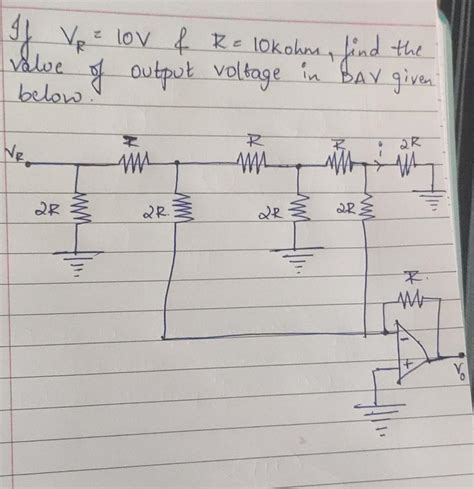 If VR = 10V & R = 10kohm, find the
value of output voltage in DAV given
below.
R R R i 2R
VR
2R 2R 2R 2R
R.
-
+
V0